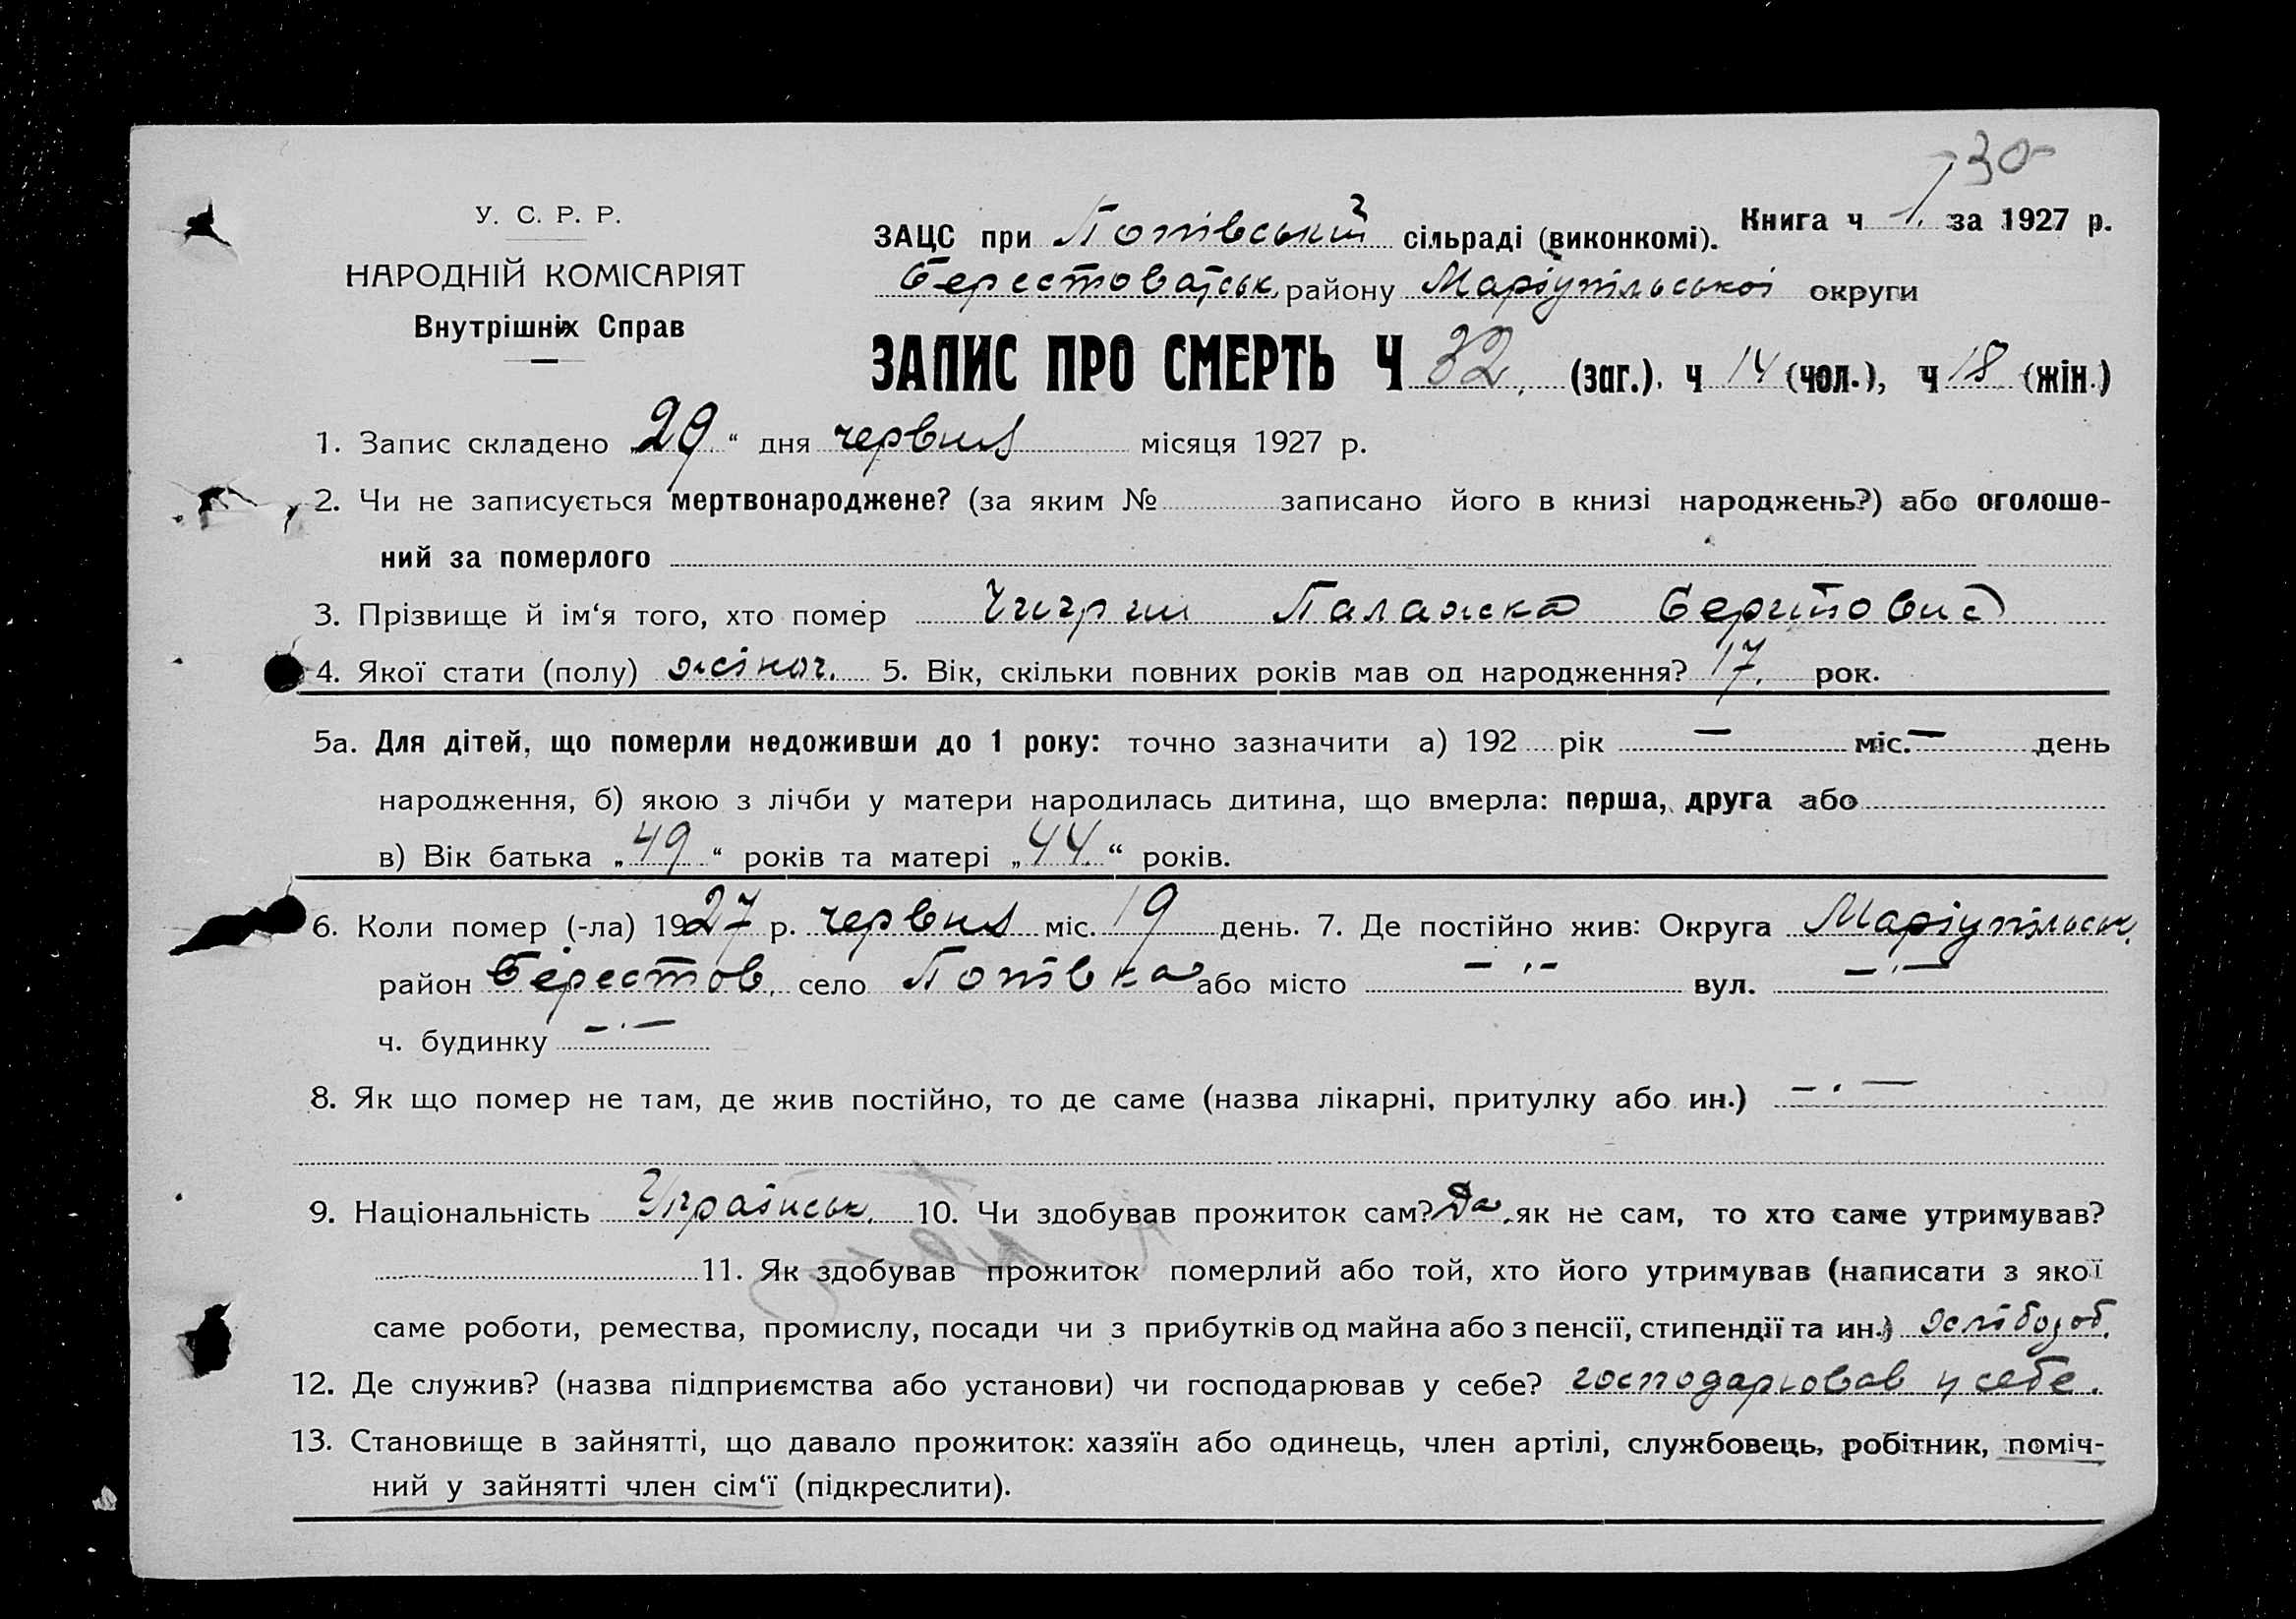 30
У. С. Р. Р.
НАРОДНІЙ КОМІСАРІЯТ
Внутрішніх Справ
ЗАЦС при Попівській сільраді (виконкомі). Книга ч 1. за 1927 р.
Берестоватськ. району Маріупільської округи
ЗАПИС ПРО СМЕРТЬ Ч 32. (заг.). ч 14 (чол.), ч 18 (жін.)
1. Запис складено „29“ дня червня місяця 1927 р.
2. Чи не записується мертвонароджене? (за яким № записано його в книзі народжень?) або оголоше-
ний за померлого
3. Прізвище й ім‘я того, хто помер Чигрин Палажка
4. Якої стати (полу) жіноч. 5. Вік, скільки повних років мав од народження? 17. рок.
5а. Для дітей, що померли недоживши до 1 року: точно зазначити а) 192 рік — міс. — день
народження, б) якою з лічби у матери народилась дитина, що вмерла: перша, друга або
в) Вік батька „49“ років та матері „44“ років.
6. Коли помер (-ла) 1927 р. червня міс. 19 день. 7. Де постійно жив: Округа Маріупільськ.
район Берестов. село Попівка або місто — . — вул. — . —
ч. будинку — . —
8. Як що помер не там, де жив постійно, то де саме (назва лікарні, притулку або ин.) — . —
9. Національність Українськ. 10. Чи здобував прожиток сам? Да. як не сам, то хто саме утримував?
11. Як здобував прожиток померлий або той, хто його утримував (написати з якої
саме роботи, ремества, промислу, посади чи з прибутків од майна або з пенсії, стипендії та ин.)
12. Де служив? (назва підприємства або установи) чи господарював у себе? господарював у себе.
13. Становище в зайнятті, що давало прожиток: хазяїн або одинець, член артілі, службовець, робітник, поміч-
ний у зайнятті член сім‘ї (підкреслити).